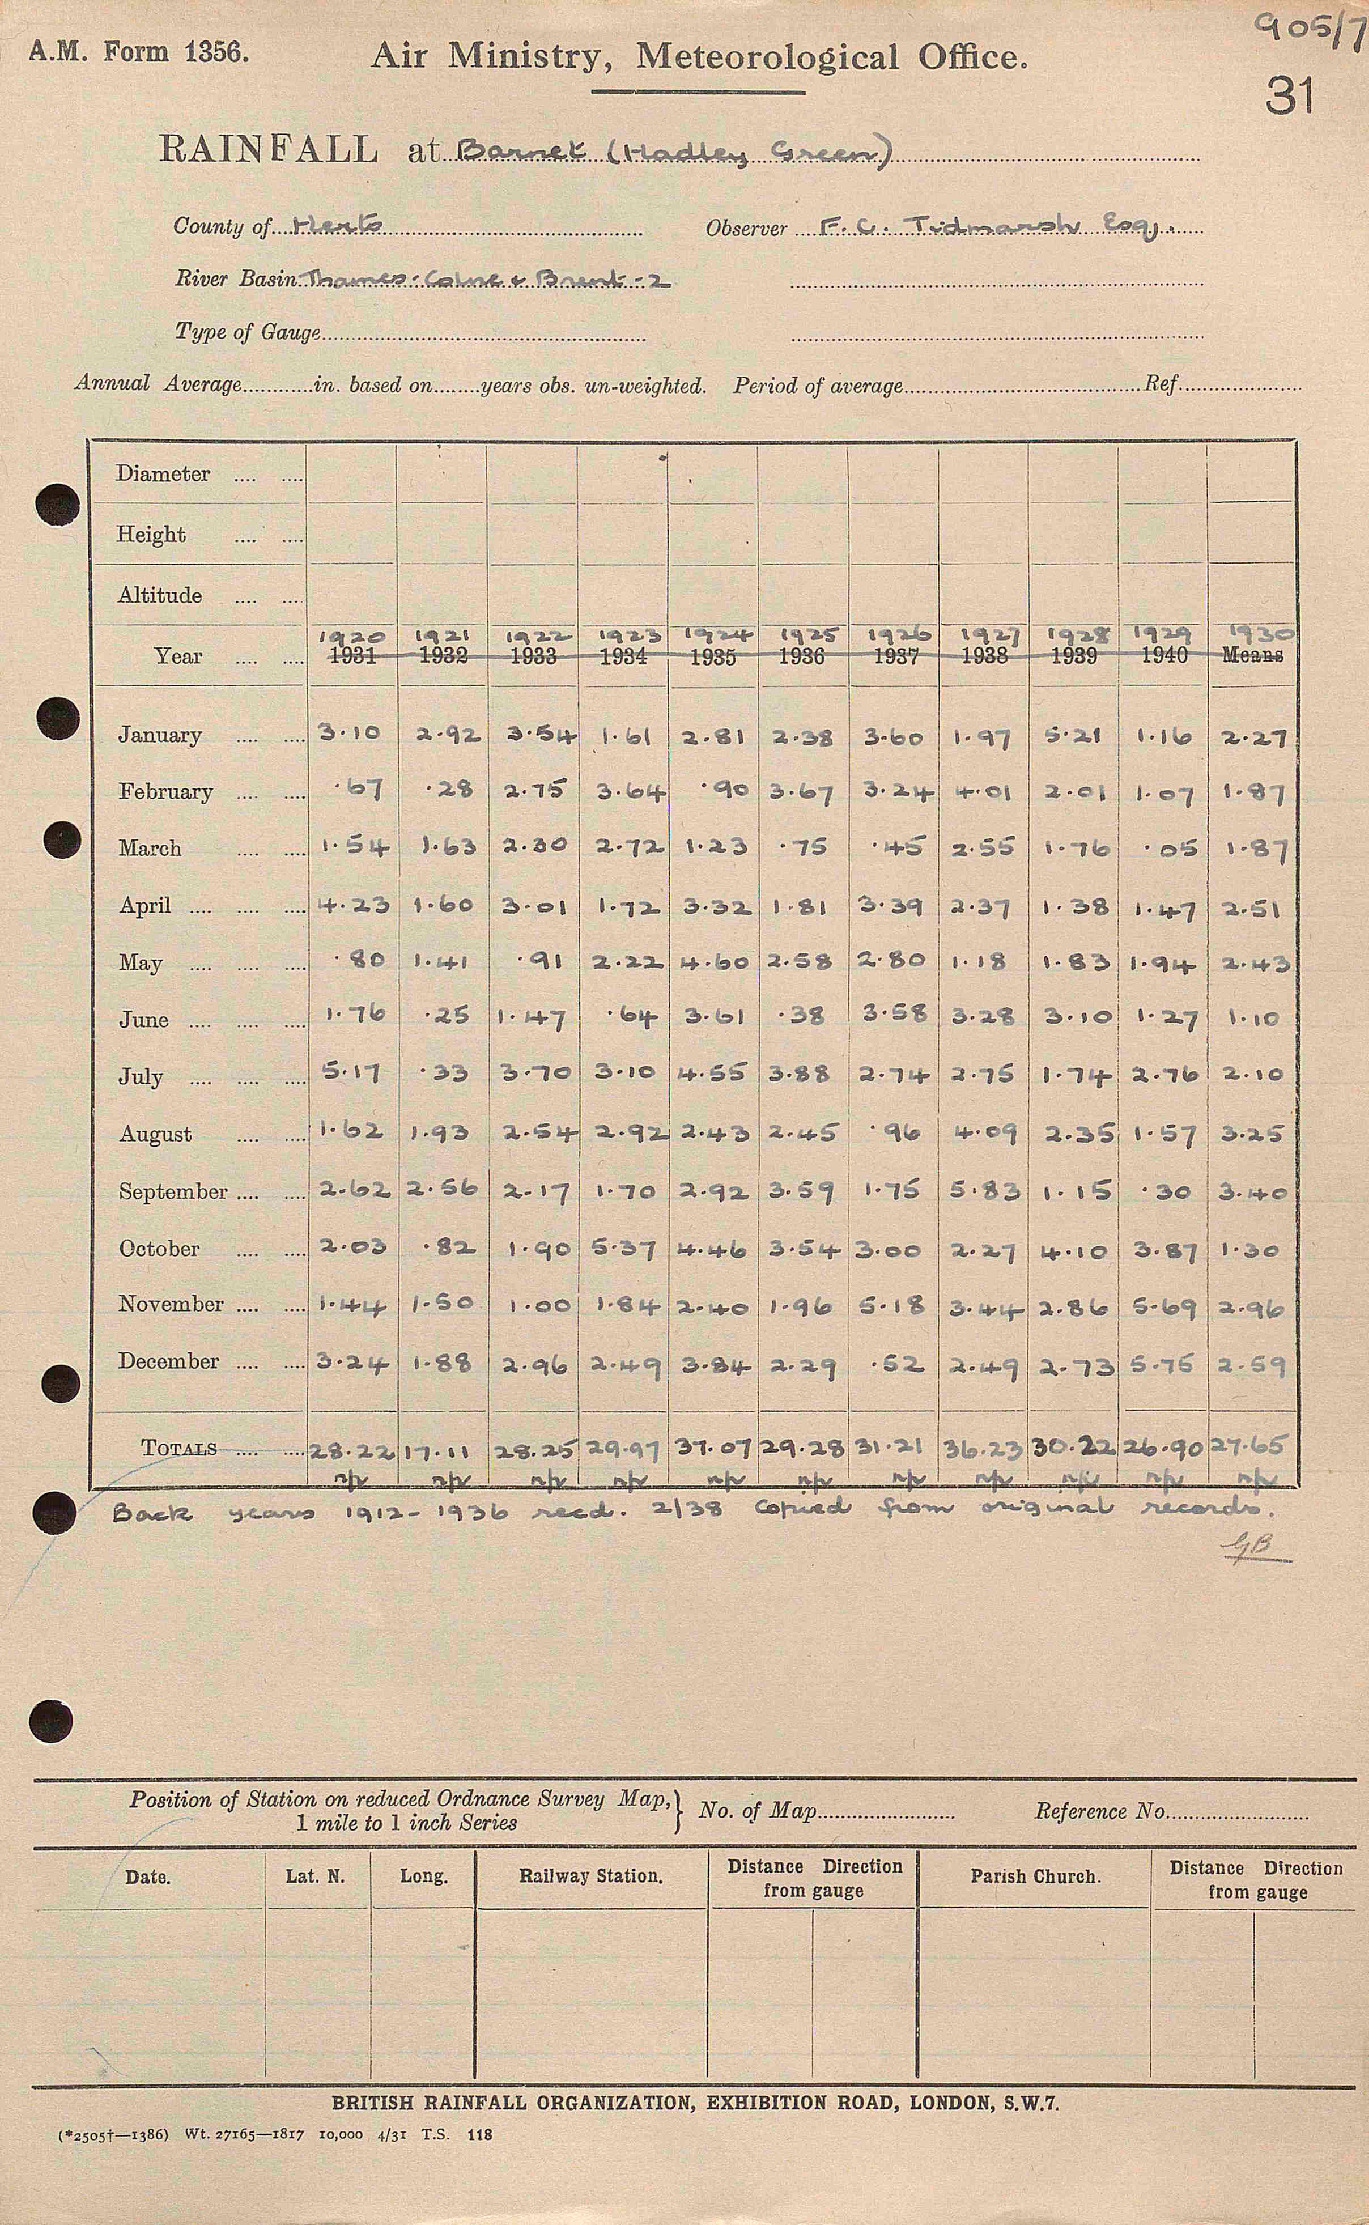 905/7
A.M. Form 1356. Air Ministry, Meteorological Office.
31
RAINFALL at Barnet (Hadley Green)
County of Herts Observer F. C. Tidmarsh Esq.
River Basin Thames: Colne & Brent - 2
Type of Gauge
Annual Average in. based on years obs. un-weighted. Period of average Ref.
Diameter
Height
Altitude
1920 1921 1922 1923 1924 1925 1926 1927 1928 1929 1930
Year 1931 1932 1933 1934 1935 1936 1937 1938 1939 1940 Means
January 3.10 2.92 3.54 1.61 2.81 2.38 3.60 1.97 5.21 1.16 2.27
February .67 .28 2.75 3.64 .90 3.67 3.24 4.01 2.01 1.07 1.87
March 1.54 1.63 2.30 2.72 1.23 .75 .45 2.55 1.76 .05 1.87
April 4.23 1.60 3.01 1.72 3.32 1.81 3.39 2.37 1.38 1.47 2.51
May .80 1.41 .91 2.22 4.60 2.58 2.80 1.18 1.83 1.94 2.43
June 1.76 .25 1.47 .64 3.61 .38 3.58 3.28 3.10 1.27 1.10
July 5.17 .33 3.70 3.10 4.55 3.88 2.74 2.75 1.74 2.76 2.10
August 1.62 1.93 2.54 2.92 2.43 2.45 .96 4.09 2.35 1.57 3.25
September 2.62 2.56 2.17 1.70 2.92 3.59 1.75 5.83 1.15 .30 3.40
October 2.03 .82 1.90 5.37 4.46 3.54 3.00 2.27 4.10 3.87 1.30
November 1.44 1.50 1.00 1.84 2.40 1.96 5.18 3.44 2.86 5.69 2.96
December 3.24 1.88 2.96 2.49 3.84 2.29 .52 2.49 2.73 5.75 2.59
TOTALS 28.22 17.11 28.25 29.97 37.07 29.28 31.21 36.23 30.22 26.90 27.65
Back years 1912-1936 recd. 2/38 Copied from original records.
GB
Position of Station on reduced Ordnance Survey Map, } No. of Map Reference No.
1 mile to 1 inch Series
Date. Lat. N. Long. Railway Station. Distance Direction from gauge Parish Church. Distance Direction from gauge
BRITISH RAINFALL ORGANIZATION, EXHIBITION ROAD, LONDON, S.W.7.
(*2505†—1386) Wt. 27165—1817 10,000 4/31 T.S. 118